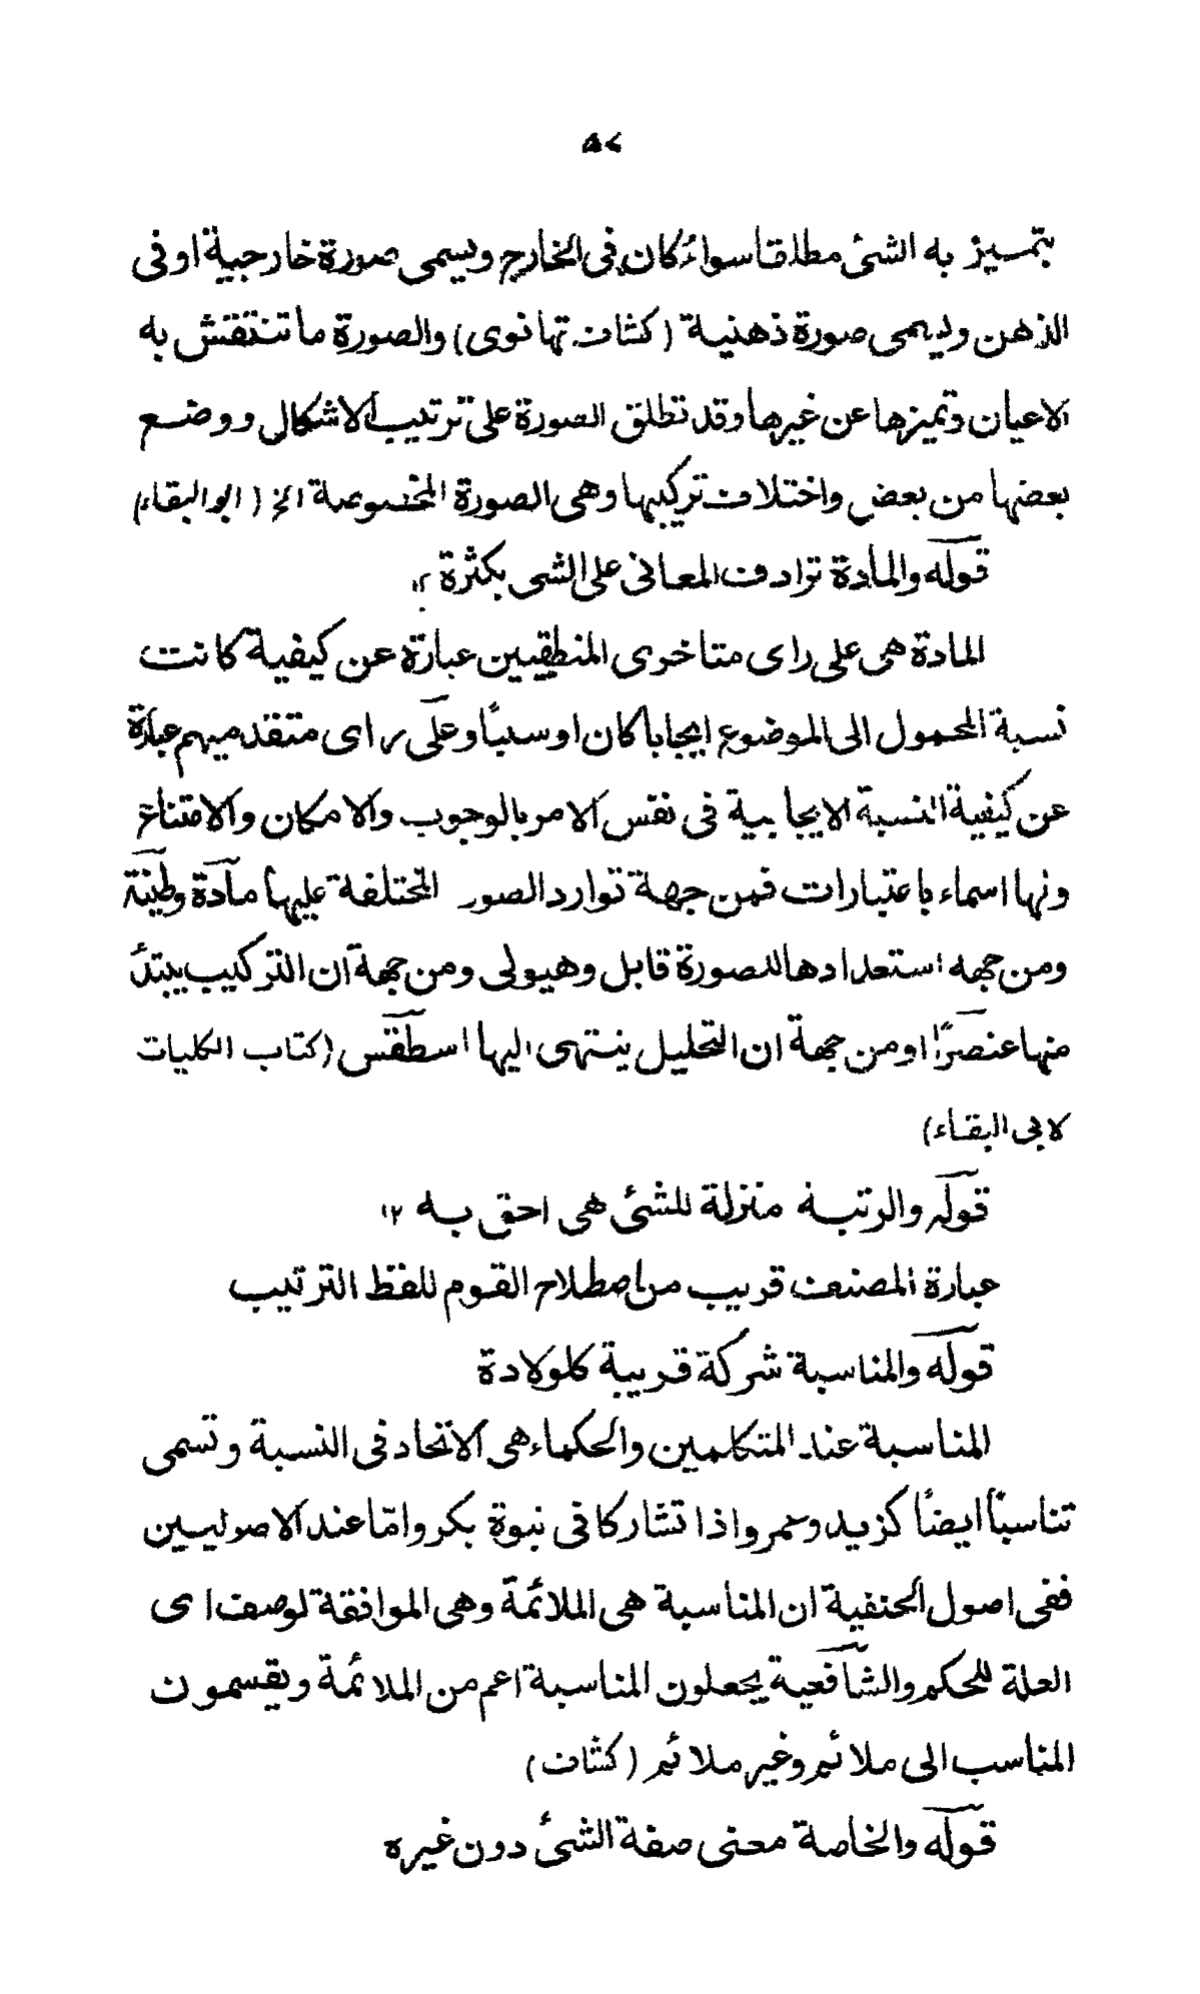 ۵۷
يتميز به الشئ مطلقا سواء كان فى الخارج ويسمى صورة خارجية او فى
الذهن ويسمى صورة ذهنية (كشاف تهانوى) والصورة ما تنتقش به
الاعيان وتميزها عن غيرها وقد تطلق الصورة على ترتيب الاشكال ووضع
بعضها من بعض واختلاف تركيبها وهى الصورة المخصوصة الخ (ابو البقاء)
قوله والمادة ترادف المعانى على الشى بكثرة ۱۲
المادة هى على راى متاخرى المنطقيين عبارة عن كيفية كانت
نسبة المحمول الى الموضوع ايجابا كان او سلبًا وعلى راى متقدميهم عبارة
عن كيفية النسبة الايجابية فى نفس الامر بالوجوب والامكان والامتناع
ولها اسماء باعتبارات فمن جهة توارد الصور المختلفة عليها مادة وطينة
ومن جهه استعدادها للصورة قابل وهيولى ومن جهة ان التركيب يبتدأ
منها عنصرًا ومن جهة ان التحليل ينتهى اليها اسطقس (كتاب الكليات
لابى البقاء)
قوله والرتبة منزلة للشئ هى احق به ۱۲
عبارة المصنف قريب من اصطلاح القوم للفظ الترتيب
قوله والمناسبة شركة قريبة كالولادة
المناسبة عند المتكلمين والحكماء هى الاتحاد فى النسبة وتسمى
تناسبًا ايضًا كزيد وعمرو اذا تشاركا فى نبوة بكر وامّا عند الاصوليين
ففى اصول الحنفية ان المناسبة هى الملائمة وهى الموافقة لوصف اى
العلة للحكم والشافعية يجعلون المناسبة اعم من الملائمة ويقسمون
المناسب الى ملائم وغير ملائم (كشاف)
قوله والخاصة معنى صفة الشئ دون غيره